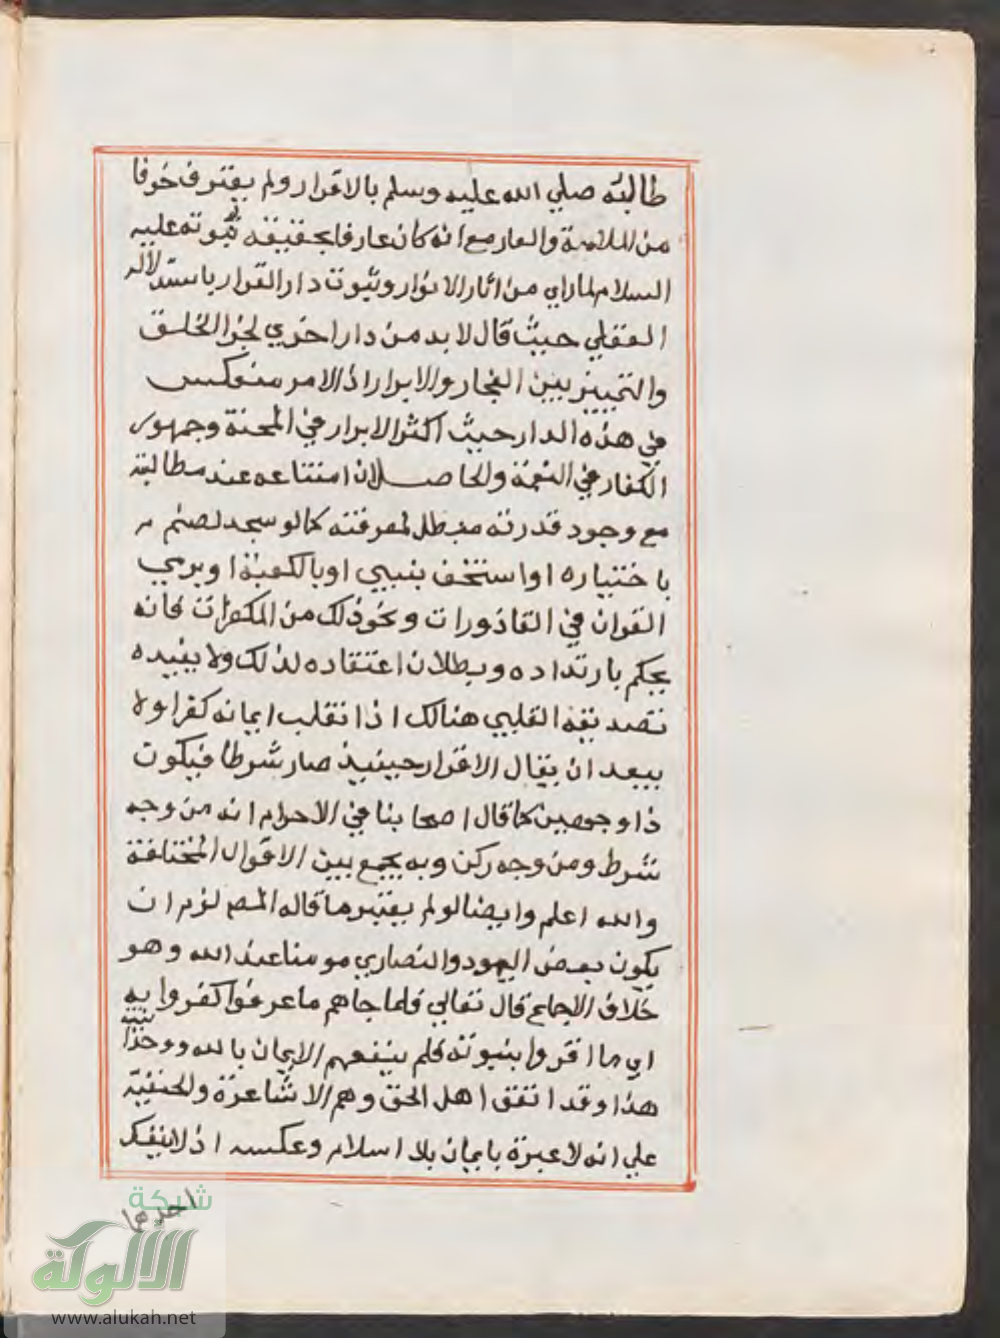 طالبه صلي الله عليه وسلم بالاقرار ولم يعترف خوفا
من الملامة والعار مع انه كان عارفا بحقيقة نبوته عليه
السلام لما راي من اثار الانوار وثبوت دار القرار باستدلاله
العقلي حيث قال لا بد من دار اخري لجزا الخلق
والتمييز بين الفجار والابرار اذ الامر منعكس
في هذه الدار حيث اكثر الابرار في المحنة وجمهور
الكفار في النعمة والحاصل ان امتناعه عند مطالبة
مع وجود قدرته مبطل لمعرفته كما لو سجد لصنم
باختياره او استخف بنبي او بالكعبة او يرمي
القران في القاذورات ونحو ذلك من المكفرات فانه
يحكم بارتداده وبطلان اعتقاده لذلك ولا يفيده
تصديقه القلبي هنالك اذا نقلب ايمانه كفرا ولا
يبعد ان يقال الاقرار حينيذ صار شرطا فيكون
ذا وجهين كما قال اصحابنا في الاحرام انه من وجه
شرط ومن وجه ركن وبه يجمع بين الاقوال المختلفة
والله اعلم وايضا لو لم يعتبر ما قاله المص لزم ان
يكون بعض اليهود والنصاري مومنا عند الله وهو
خلاف الاجماع قال تعالي فلما جاهم ما عرفوا كفروا به
اي ما اقروا بنبوته فلم ينفعهم الايمان بالله ووحدانيته
هذا وقد اتفق اهل الحق وهم الاشاعرة والحنفية
علي انه لا عبرة بايمان بلا اسلام وعكسه اذ لا ينفك
احدهما
شبكة
الألوكة
www.alukah.net